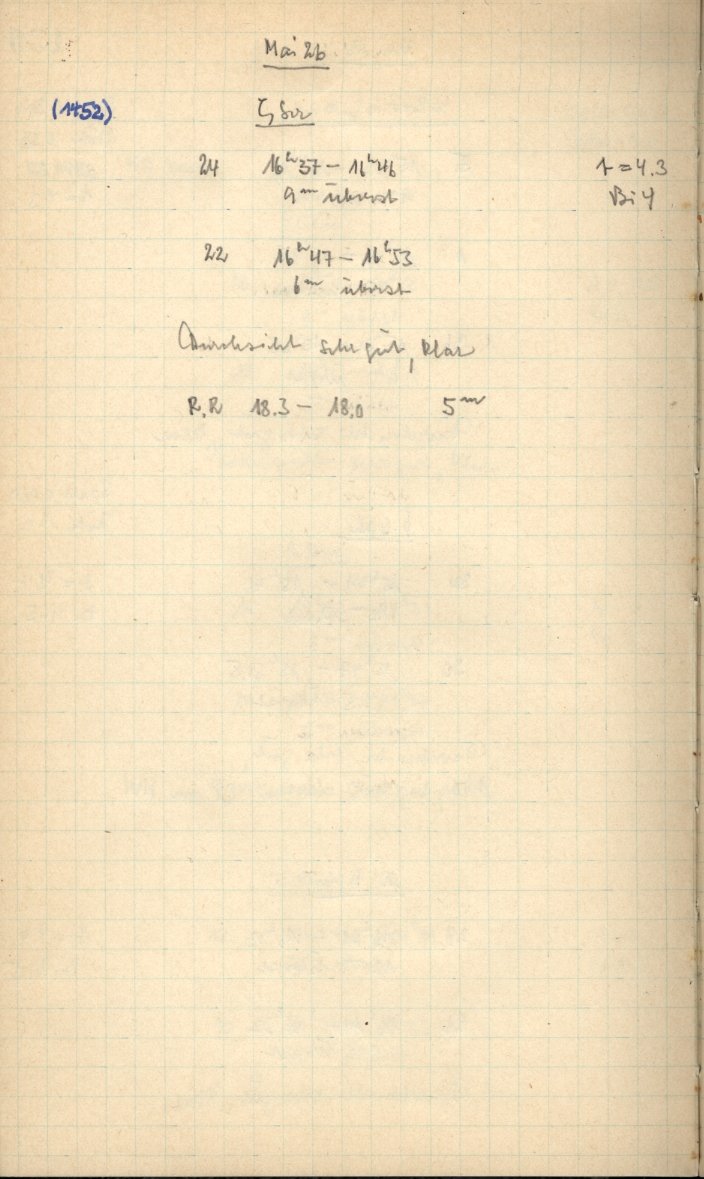 Mai 26
(1452)
ζ Scr
24 16ʰ37 – 16ʰ46 t = 4.3
9ᵐ überst Bi 4
22 16ʰ47 – 16ʰ53
6ᵐ überst
Durchsicht sehr gut, klar
R.R 18.3 – 18.0 5ᵐ